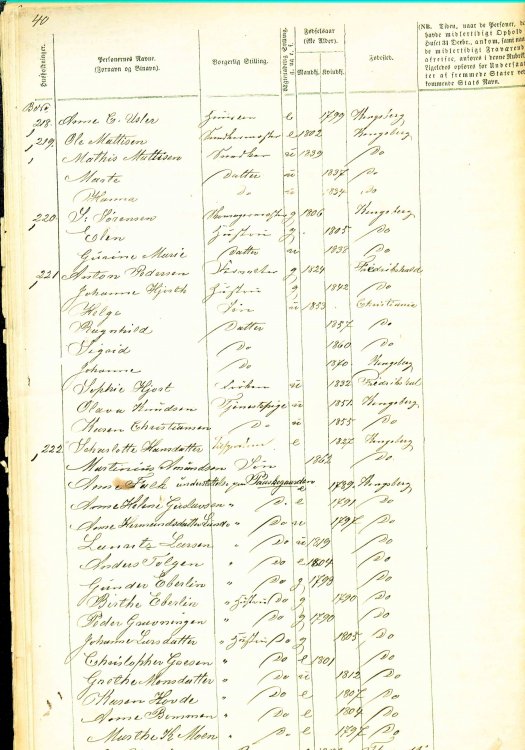 40
Husfordninger.
Personernes Navne. (Fornavn og Binavn).
Borgerlig Stilling.
Fødselsaar (ifle Alder).
Mandkj. Kvindkj.
Fødested.
(NB. Tiden, naar de Personer, de havde midlertidigt Ophold Huset 31 Decbr., ankom, samt naar de midlertidigt Fraværende afreiste, anføres i denne Rubrik. Ligeledes opføres for Undersaatter af fremmede Stater vedkommende Stats Navn.
218. Anne C. Usler e 1799 Kongsberg
219. Ole Mattisen Snedkermester e 1802 Kongsberg
Mathis Mattisen Snedker u 1839 Do
Marte Datter u 1837 Do
Hanna Do u 1834 Do
220. S. Sørensen g 1806 Kongsberg
Elen Hustru g 1805 Do
Gurine Marie Datter u 1838 Do
221. Anton Pedersen g 1824 Fredrikshald
Johanne Hjorth Hustru g 1842 Do
Helge Søn u 1853 Christiania
Ragnhild Datter 1857 Do
Sigrid Do 1860 Do
Johanne Do 1870 Kongsberg
Sophie Hjort Frøken u 1832 Fredrikshal
Olava Knudsen Tjenestepige u 1851 Kongsberg
Karen Christiansen Do u 1855 Do
222. Scharlotte Hansdatter e 1827 Kongsberg
Martinius Amundsen Søn 1862 Do
Anne Falk understøttes paa e 1789 Kongsberg
Anne Helene Gustavsen " D. e 1791 Do
Anne Hermundsdatter Lund " Do u 1797 Do
Lauritz Larsen " Do u 1819 Do
Anders Tolgen " Do e 1804 Do
Gunder Eberlin " Do g 1793 Do
Birthe Eberlin " Hustru Do g 1790 Do
Peder Gravningen " Do g 1790 Do
Johanne Larsdatter " Hustru Do g 1805 Do
Christopher Gaesen " Do e 1801 Do
Grethe Monsdatter " Do u 1812 Do
Karen Hovde " Do e 1807 Do
Anne Bemmen " Do e 1804 Do
Marthe K. Moen " Do e 1797 Do